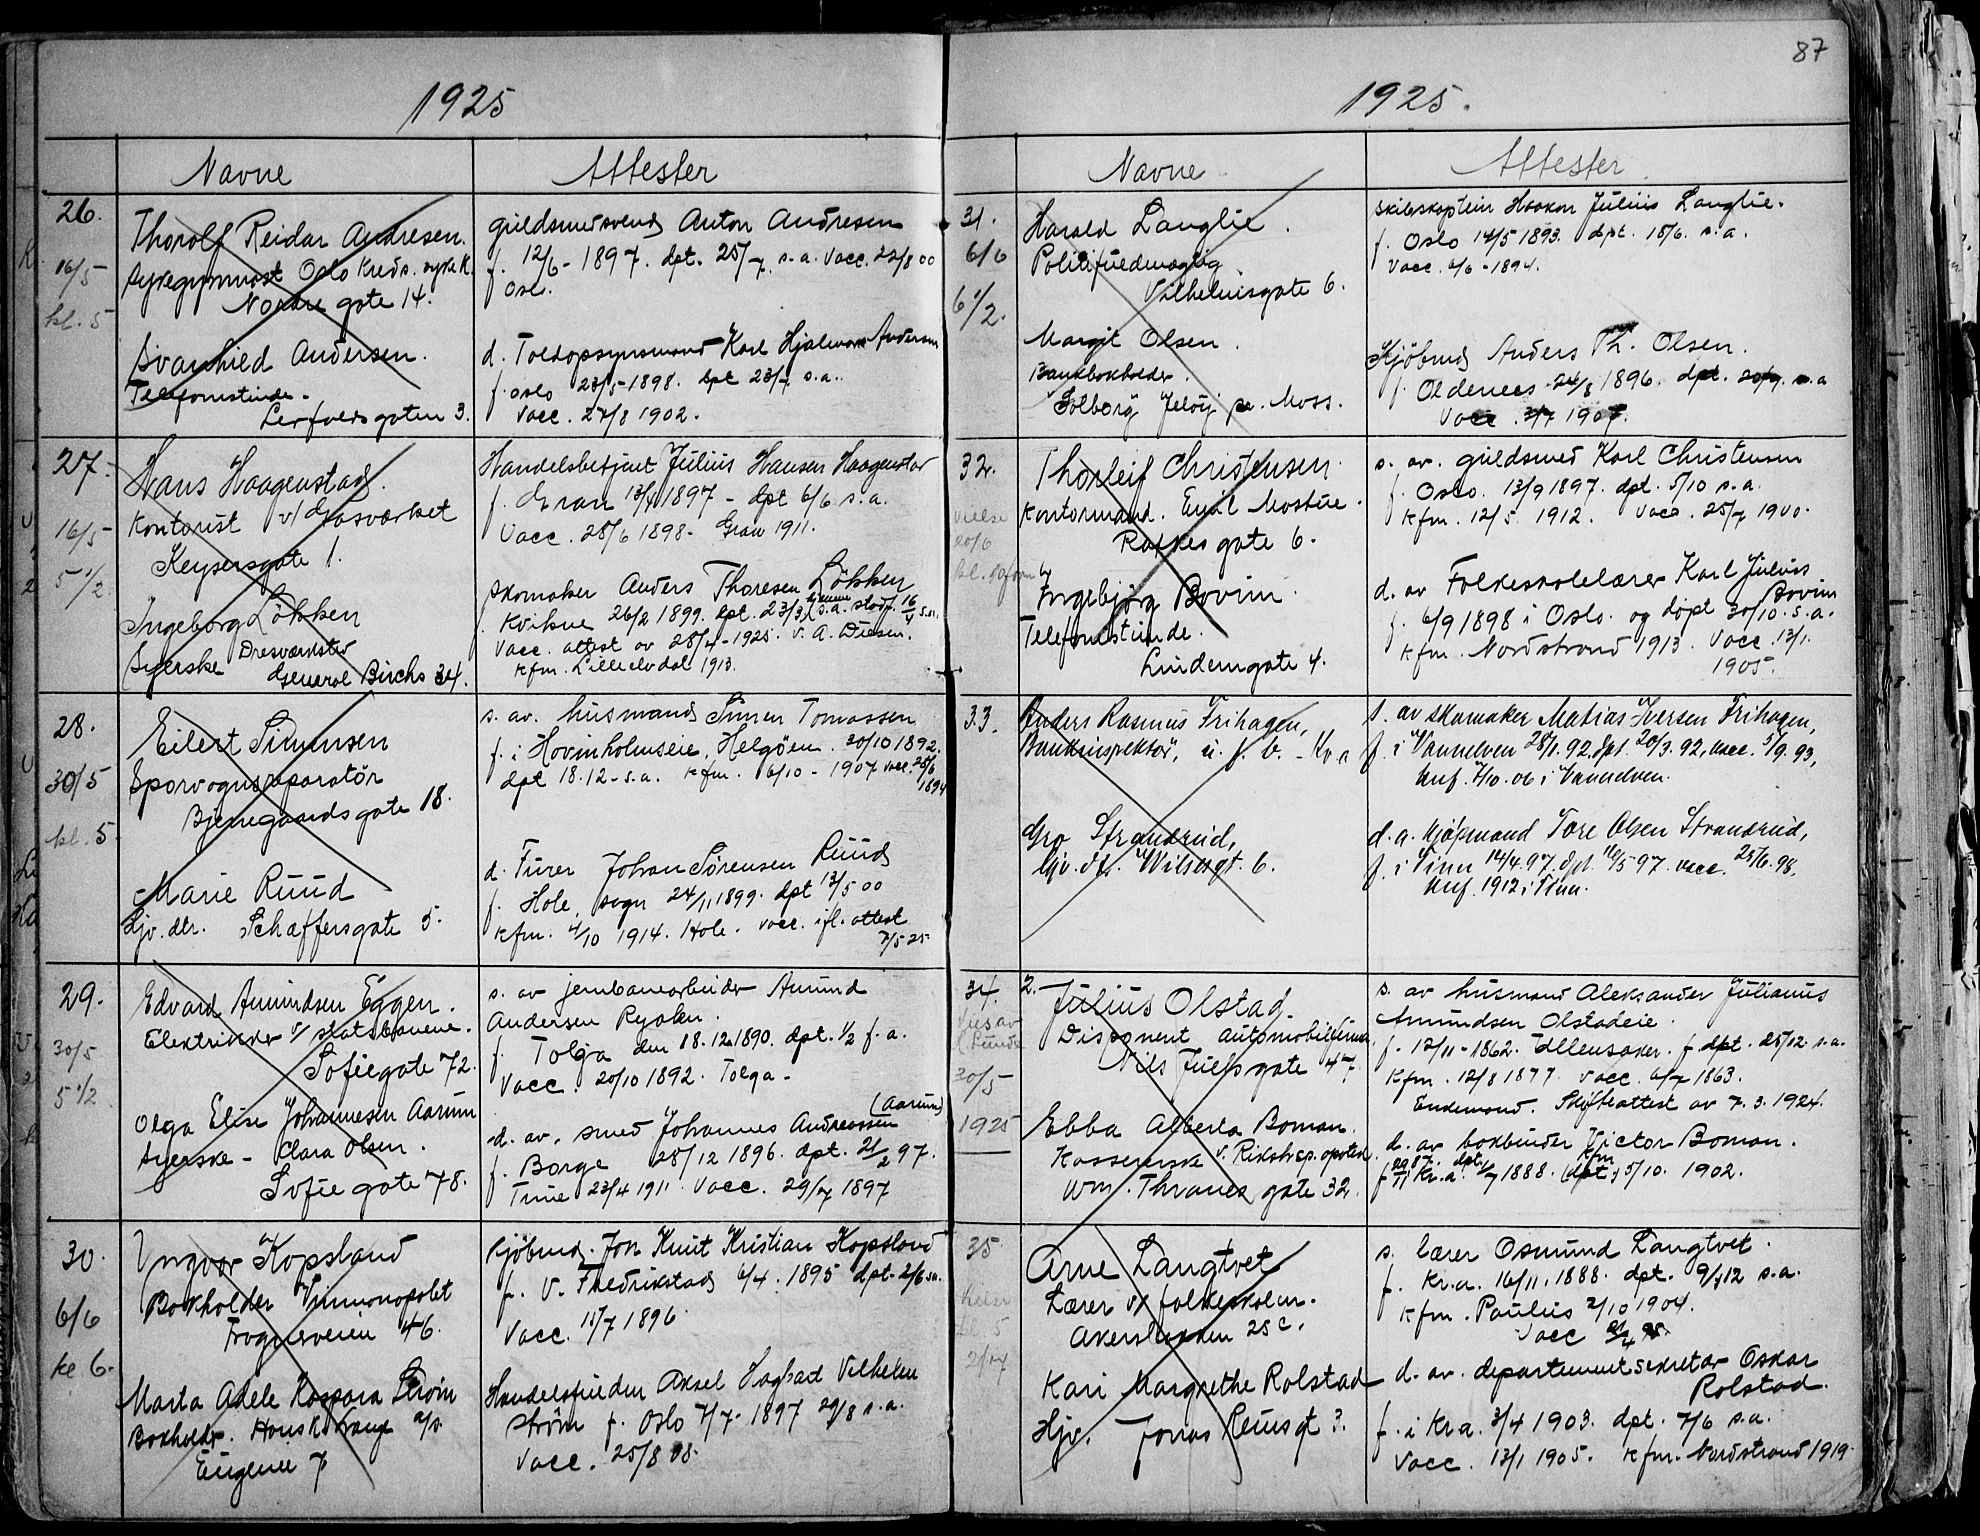 1925
Navne Attester
26.
16/5
kl. 5
Thorolf Reidar Andresen.
sykegymnast Oslo Kreds. sykek.
Nordre gate 14.
Svanhild Andersen.
Telefonistinde.
guldsmedsvend Anton Andresen
f. 12/6 - 1897. dpt. 25/7. s.a. Vacc. 22/8 00
Oslo.
d. Toldopsynsmand Karl Hjalmar Andersen
f. Oslo 23/5 - 1898. dpt 23/7. s.a.
Vacc. 27/8 1902.
27.
16/5
5 1/2
Hans Haagenstad.
Kontorist v/ Gasværket
Keysersgate 1.
Ingeborg Løkken
Syerske
General Birchs 34.
Handelsbetjent Julius Hansen Haagenstad
f. Gran 1897 - dpt 6/6 s.a.
Vacc. 28/6 1898. Gran 1911.
Skomaker Anders Thoresen Løkken
f. Kvikne 26/2 1899. dpt. 23/3
Vacc. attest av 28/4 - 1925. v. A.
kfm. Lilleelvdal 1913.
28.
30/5
kl. 5
Eilert Simensen
Sporvognsreparatør
Bjerregaards gate 18.
Marie Ruud
Hjv. dtr. Schaffersgate 5.
s. av. husmand Simen Tomassen
f. i Hovinholmseie, Helgøen. 30/10 1892.
dpt 18.12 - s.a. kfm. 6/10 - 1907. vacc. 28/6
1894
d. Furer Johan Sørensen Ruud
f. Hole sogn 24/11 1899. dpt 13/5 00
kfm. 4/10 1914. Hole. vacc. ifl. attest
7/5 25
29.
30/5
5 1/2
Edvard Amundsen Eggen.
Elektriker v/ statsbanene.
Sofiegate 72.
Olga Elise Johannesen Aarum
Syerske - Clara Olsen.
Sofie gate 78.
s. av jernbanearbeider Amund
Andersen
f. Tolga den 18.12 1890. dpt. 1/2 f.a.
Vacc. 20/10 1892. Tolga -
(Aarum)
d. av. smed Johannes Andreassen
f. Borge 28/12 1896. dpt. 21/2 97.
Tune 23/4 1911. Vacc. 29/7 1897
30.
6/6
kl 6.
Yngvar Kopsland
Bokholder Vinmonopolet
Frognerveien 46.
Marta Adele Kaspara Strøm
Bokholdr.
Eugenie 7
Kjøbmd. Jon Knut Kristian Kopsland
f. V. Fredrikstad 6/4. 1895 dpt. 2/6 s.a.
Vacc. 15/7 1896
Aksel Hagbart Vilhelm
Strøm f. Oslo 7/7 - 1897 29/8 s.a.
Vacc. 25/8 08.
87
1925.
Navne Attester
31.
6/6
6 1/2.
Harald Langlie.
Politifuldmægtig
Vilhelmsgate 6.
Margit Olsen.
Bankbokholder.
Solborg Jeløy pr. Moss.
Skibskaptein Haakon Julius Langlie.
f. Oslo 14/5 1893. dpt. 18/6. s.a.
Vacc. 6/6 - 1894.
Kjøbmd Anders Th. Olsen.
f. 1896. dpt. s.a
Vacc. 3/7 1907.
32.
vielse
20/6
Thorleif Christensen
Kontormand. Emil Mostue.
gate 6.
Ingebjørg Bovim.
Telefonistinde.
Lindemgate 4.
s. av. guldsmed Karl Christensen
f. Oslo. 13/9 1897. dpt. 5/10 s.a.
kfm. 12/5. 1912. Vacc. 25/7 1900.
d. av Folkeskolelærer Karl Julius
Bovim
f. 6/9 1898 i Oslo. og døpt 30/10. s.a.
kfm. Nordstrand 1913. Vacc. 13/1.
1905.
33.
Anders Rasmus Frihagen,
Bankinspektør, u. f. v. - Kr.a
Gro Strandrud,
s. av skomaker Matias Iversen Frihagen,
f. i Vannelven 28/1. 92, dpt. 20/3. 92, vacc. 5/9. 93,
Knf. 7/10. 06 i Vannelven.
d. a. Kjøpmand Tore Olsen Strandrud,
f. i Tinn 14/4. 97. dpt. 16/5 97. vacc. 25/6. 98,
Knf. 1912 i Tinn.
34.
30/5
1925
2.
Julius Olstad.
Disponent Automobilfirma
Nils Juels gate 47.
Ebba Alberta Boman.
Kassererske v. Rikshosp. apotek.
Wm. Thranes gate 32.
s. av husmand Aleksander Julianus
Amundsen Olstadeie.
f. 12/11 - 1862. Ullensaker. dpt. 25/12 s.a.
kfm. 12/8 1877. Vacc. 6/7 1863.
Enkemand. Skifteattest av 7.3.1924.
d. av bokbinder Victor Boman.
1888. 5/10. 1902.
35.
kl. 5
Arne Langtvet
Lærer v/ folkeskolen.
25 c.
Kari Margrethe Rolstad
Hjv. Jonas Reinsgt ?.
s. lærer Osmund Langtvet.
f. Kr.a. 16/11. 1888. dpt. 9/12 s.a.
kfm. Paulus 2/10 1904.
Vacc
d. av. departementsekretær Oskar
Rolstad.
f. i Kr.a. 3/4 1903. dpt. 7/6 s.a.
Vacc. 13/1 1905. kfm. Nordstrand 1919.